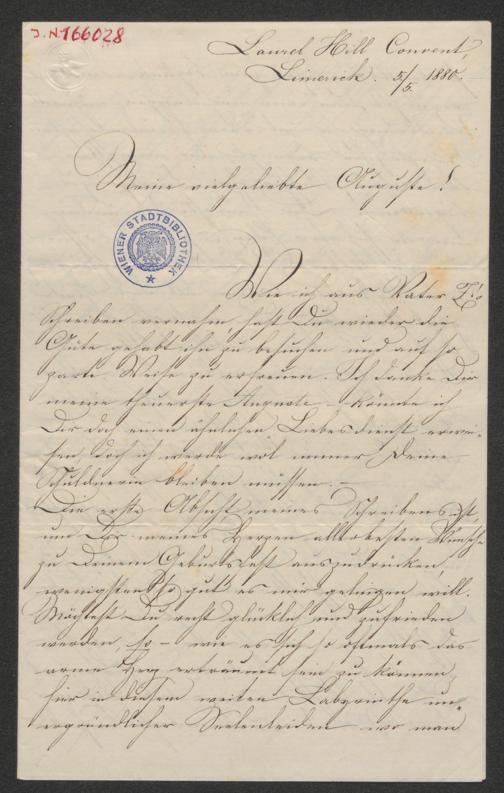 J.N. 166028
Laurel Hill Convent,
Limerick. 5/5. 1880.
Meine vielgeliebte Auguste!
WIENER STADTBIBLIOTHEK
Wie ich aus Vater
Schreiben vernahm, hast Du wieder die
Güte gehabt ihn zu besuchen und auf so
zarte Weise zu erfreuen. Ich danke Dir
meine theuerste Auguste – könnte ich
Dir doch einen ähnlichen Liebesdienst erwei-
sen, doch ich werde wol immer Deine
Schuldnerin bleiben müssen. –
Die erste Absicht meines Schreibens ist
um Dir meines Herzens allerbesten Wünsche
zu Deinem Geburtsfest auszudrücken,
wenigstens so gut es mir gelingen will.
Möchtest Du recht glücklich und zufrieden
werden, so – wie es sich so oftmals das
arme Herz erträumt sein zu können,
hier in diesem weiten Labyrinthe un-
ergründlicher Seelenleiden wo man